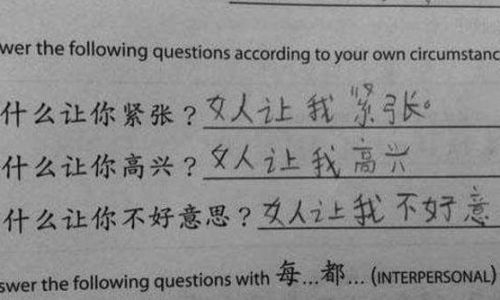 wer the following questions according to your own circumstanc
什么让你紧张？女人让我紧张。
什么让你高兴？女人让我高兴
什么让你不好意思？女人让我不好意
swer the following questions with 每...都... (INTERPERSONAL)